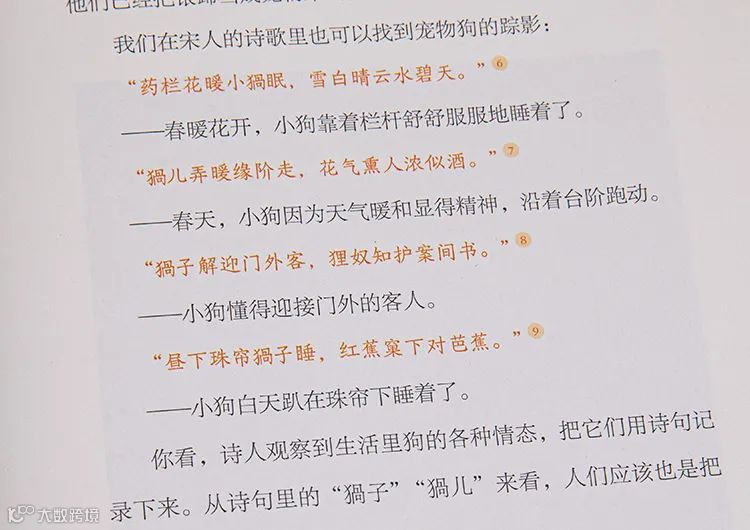 我们在宋人的诗歌里也可以找到宠物狗的踪影：
“药栏花暖小猧眠，雪白晴云水碧天。”⑥
——春暖花开，小狗靠着栏杆舒舒服服地睡着了。
“猧儿弄暖缘阶走，花气熏人浓似酒。”⑦
——春天，小狗因为天气暖和显得精神，沿着台阶跑动。
“猧子解迎门外客，狸奴知护案间书。”⑧
——小狗懂得迎接门外的客人。
“昼下珠帘猧子睡，红蕉窠下对芭蕉。”⑨
——小狗白天趴在珠帘下睡着了。
你看，诗人观察到生活里狗的各种情态，把它们用诗句记
录下来。从诗句里的“猧子”“猧儿”来看，人们应该也是把
大数跨境